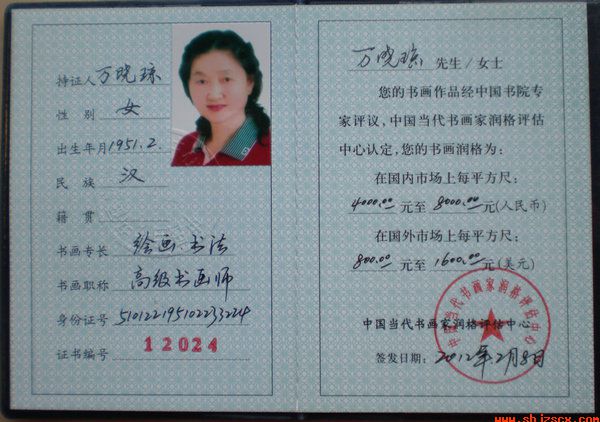 持证人 万晓琼
性别 女
出生年月 1951.2.
民族 汉
籍贯
书画专长 绘画 书法
书画职称 高级书画师
身份证号 510122195102233224
证书编号 12024
万晓琼 先生/女士
您的书画作品经中国书院专
家评议,中国当代书画家润格评估
中心认定,您的书画润格为:
在国内市场上每平方尺:
4000.00 元至 8000.00 元(人民币)
在国外市场上每平方尺:
800.00 元至 1600.00 元(美元)
中国当代书画家润格评估中心
签发日期: 2012年2月8日
中国当代书画家润格评估中心
www.shjzscx.com